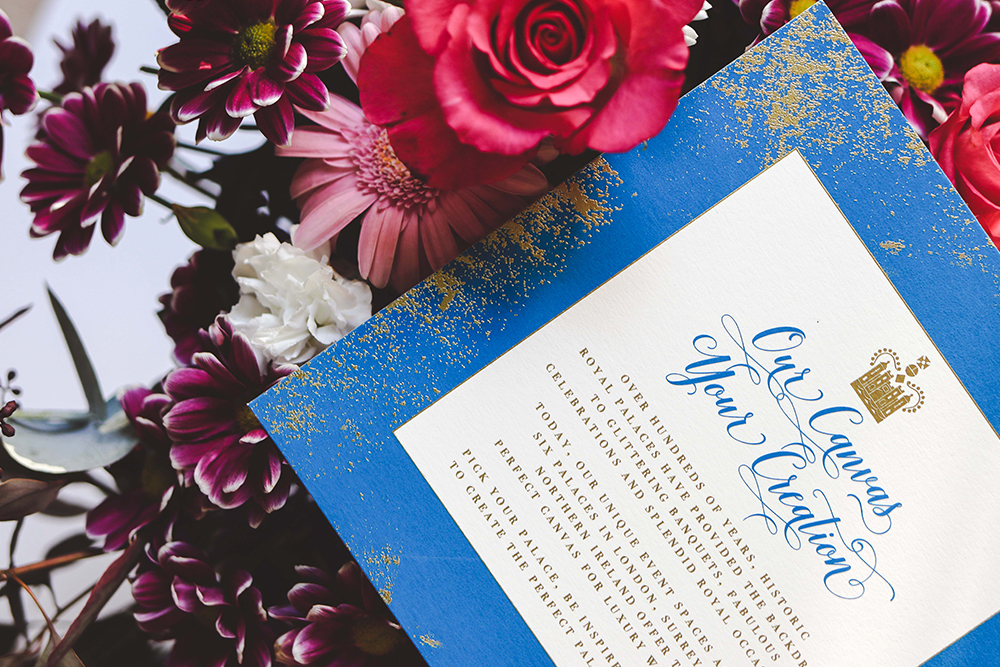 Our Canvas
Your Creation
OVER HUNDREDS OF YEARS, HISTORIC
ROYAL PALACES HAVE PROVIDED THE
TO GLITTERING BANQUETS, FABULOUS
CELEBRATIONS AND SPLENDID ROYAL
TODAY, OUR UNIQUE EVENT SPACES
SIX PALACES IN LONDON, SURREY
NORTHERN IRELAND, OFFER
PERFECT CANVAS FOR LUXURY
PICK YOUR PALACE, BE
TO CREATE THE PERFECT